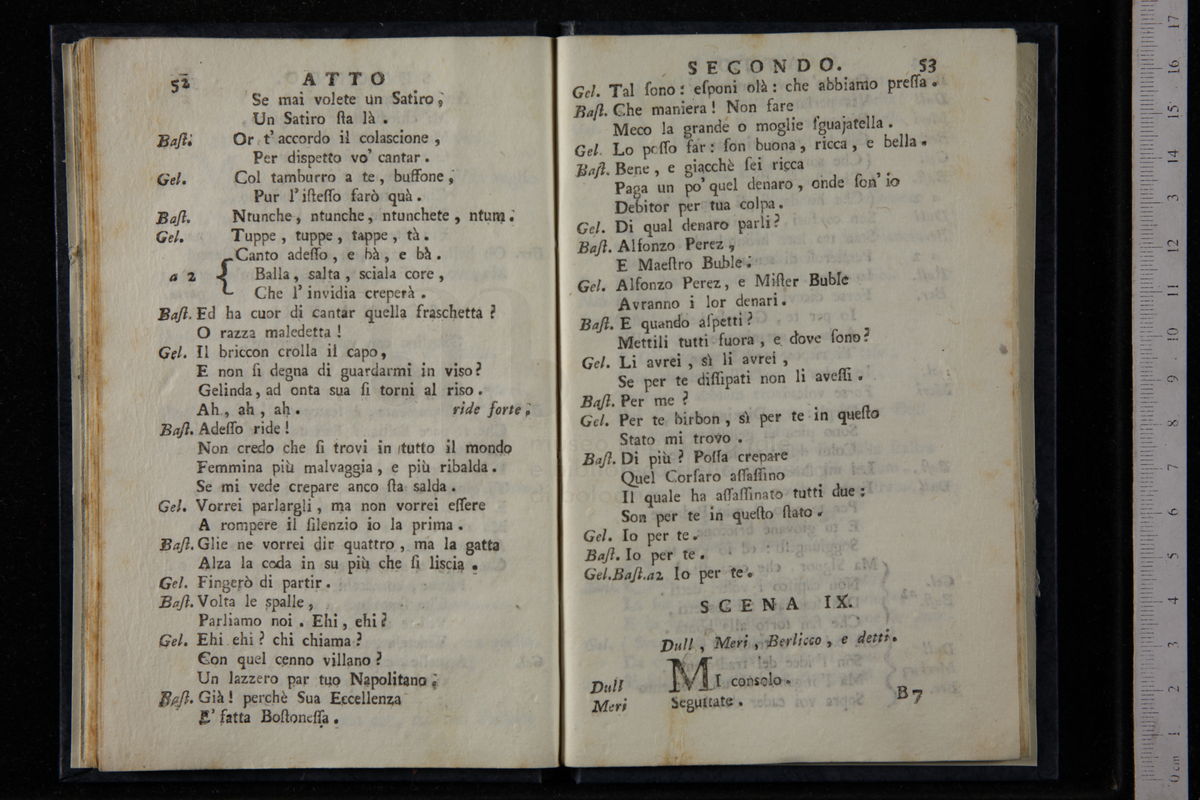 52 ATTO
Se mai volete un Satiro,
Un Satiro ſta là.
Baſt. Or t'accordo il colascione,
Per dispetto vo' cantar.
Gel. Col tamburro a te, buffone,
Pur l'iſteſſo farò quà.
Baſt. Ntunche, ntunche, ntunchete, ntum.
Gel. Tuppe, tuppe, tappe, tà.
Canto adeſſo, e bà, e bà.
a 2 { Balla, salta, sciala core,
Che l'invidia creperà.
Baſt. Ed ha cuor di cantar quella fraschetta?
O razza maledetta!
Gel. Il briccon crolla il capo,
E non ſi degna di guardarmi in viso?
Gelinda, ad onta sua ſi torni al riso.
Ah, ah, ah. ride forte;
Baſt. Adeſſo ride!
Non credo che ſi trovi in tutto il mondo
Femmina più malvaggia, e più ribalda.
Se mi vede crepare anco ſta salda.
Gel. Vorrei parlargli, ma non vorrei eſſere
A rompere il ſilenzio io la prima.
Baſt. Glie ne vorrei dir quattro, ma la gatta
Alza la coda in su più che ſi liscia.
Gel. Fingerò di partir.
Baſt. Volta le spalle,
Parliamo noi. Ehi, ehi?
Gel. Ehi ehi? chi chiama?
Con quel cenno villano?
Un lazzero par tuo Napolitano;
Baſt. Già! perchè Sua Eccellenza
E' fatta Boſtoneſſa.
SECONDO. 53
Gel. Tal ſono: eſponi olà: che abbiamo preſſa.
Baſt. Che maniera! Non fare
Meco la grande o moglie ſguajatella.
Gel. Lo poſſo far: ſon buona, ricca, e bella.
Baſt. Bene, e giacchè ſei ricca
Paga un po' quel denaro, onde ſon' io
Debitor per tua colpa.
Gel. Di qual denaro parli?
Baſt. Alfonzo Perez,
E Maeſtro Buble.
Gel. Alfonzo Perez, e Miſter Buble
Avranno i lor denari.
Baſt. E quando aſpetti?
Mettili tutti fuora, e dove ſono?
Gel. Li avrei, sì li avrei,
Se per te diſſipati non li aveſſi.
Baſt. Per me?
Gel. Per te birbon, sì per te in queſto
Stato mi trovo.
Baſt. Di più? Poſſa crepare
Quel Corſaro aſſaſſino
Il quale ha aſſaſſinato tutti due:
Son per te in queſto ſtato.
Gel. Io per te.
Baſt. Io per te.
Gel.Baſt.a2 Io per te.
SCENA IX.
Dull, Meri, Berlicco, e detti.
Dull MI consolo.
Meri Seguitate. B7